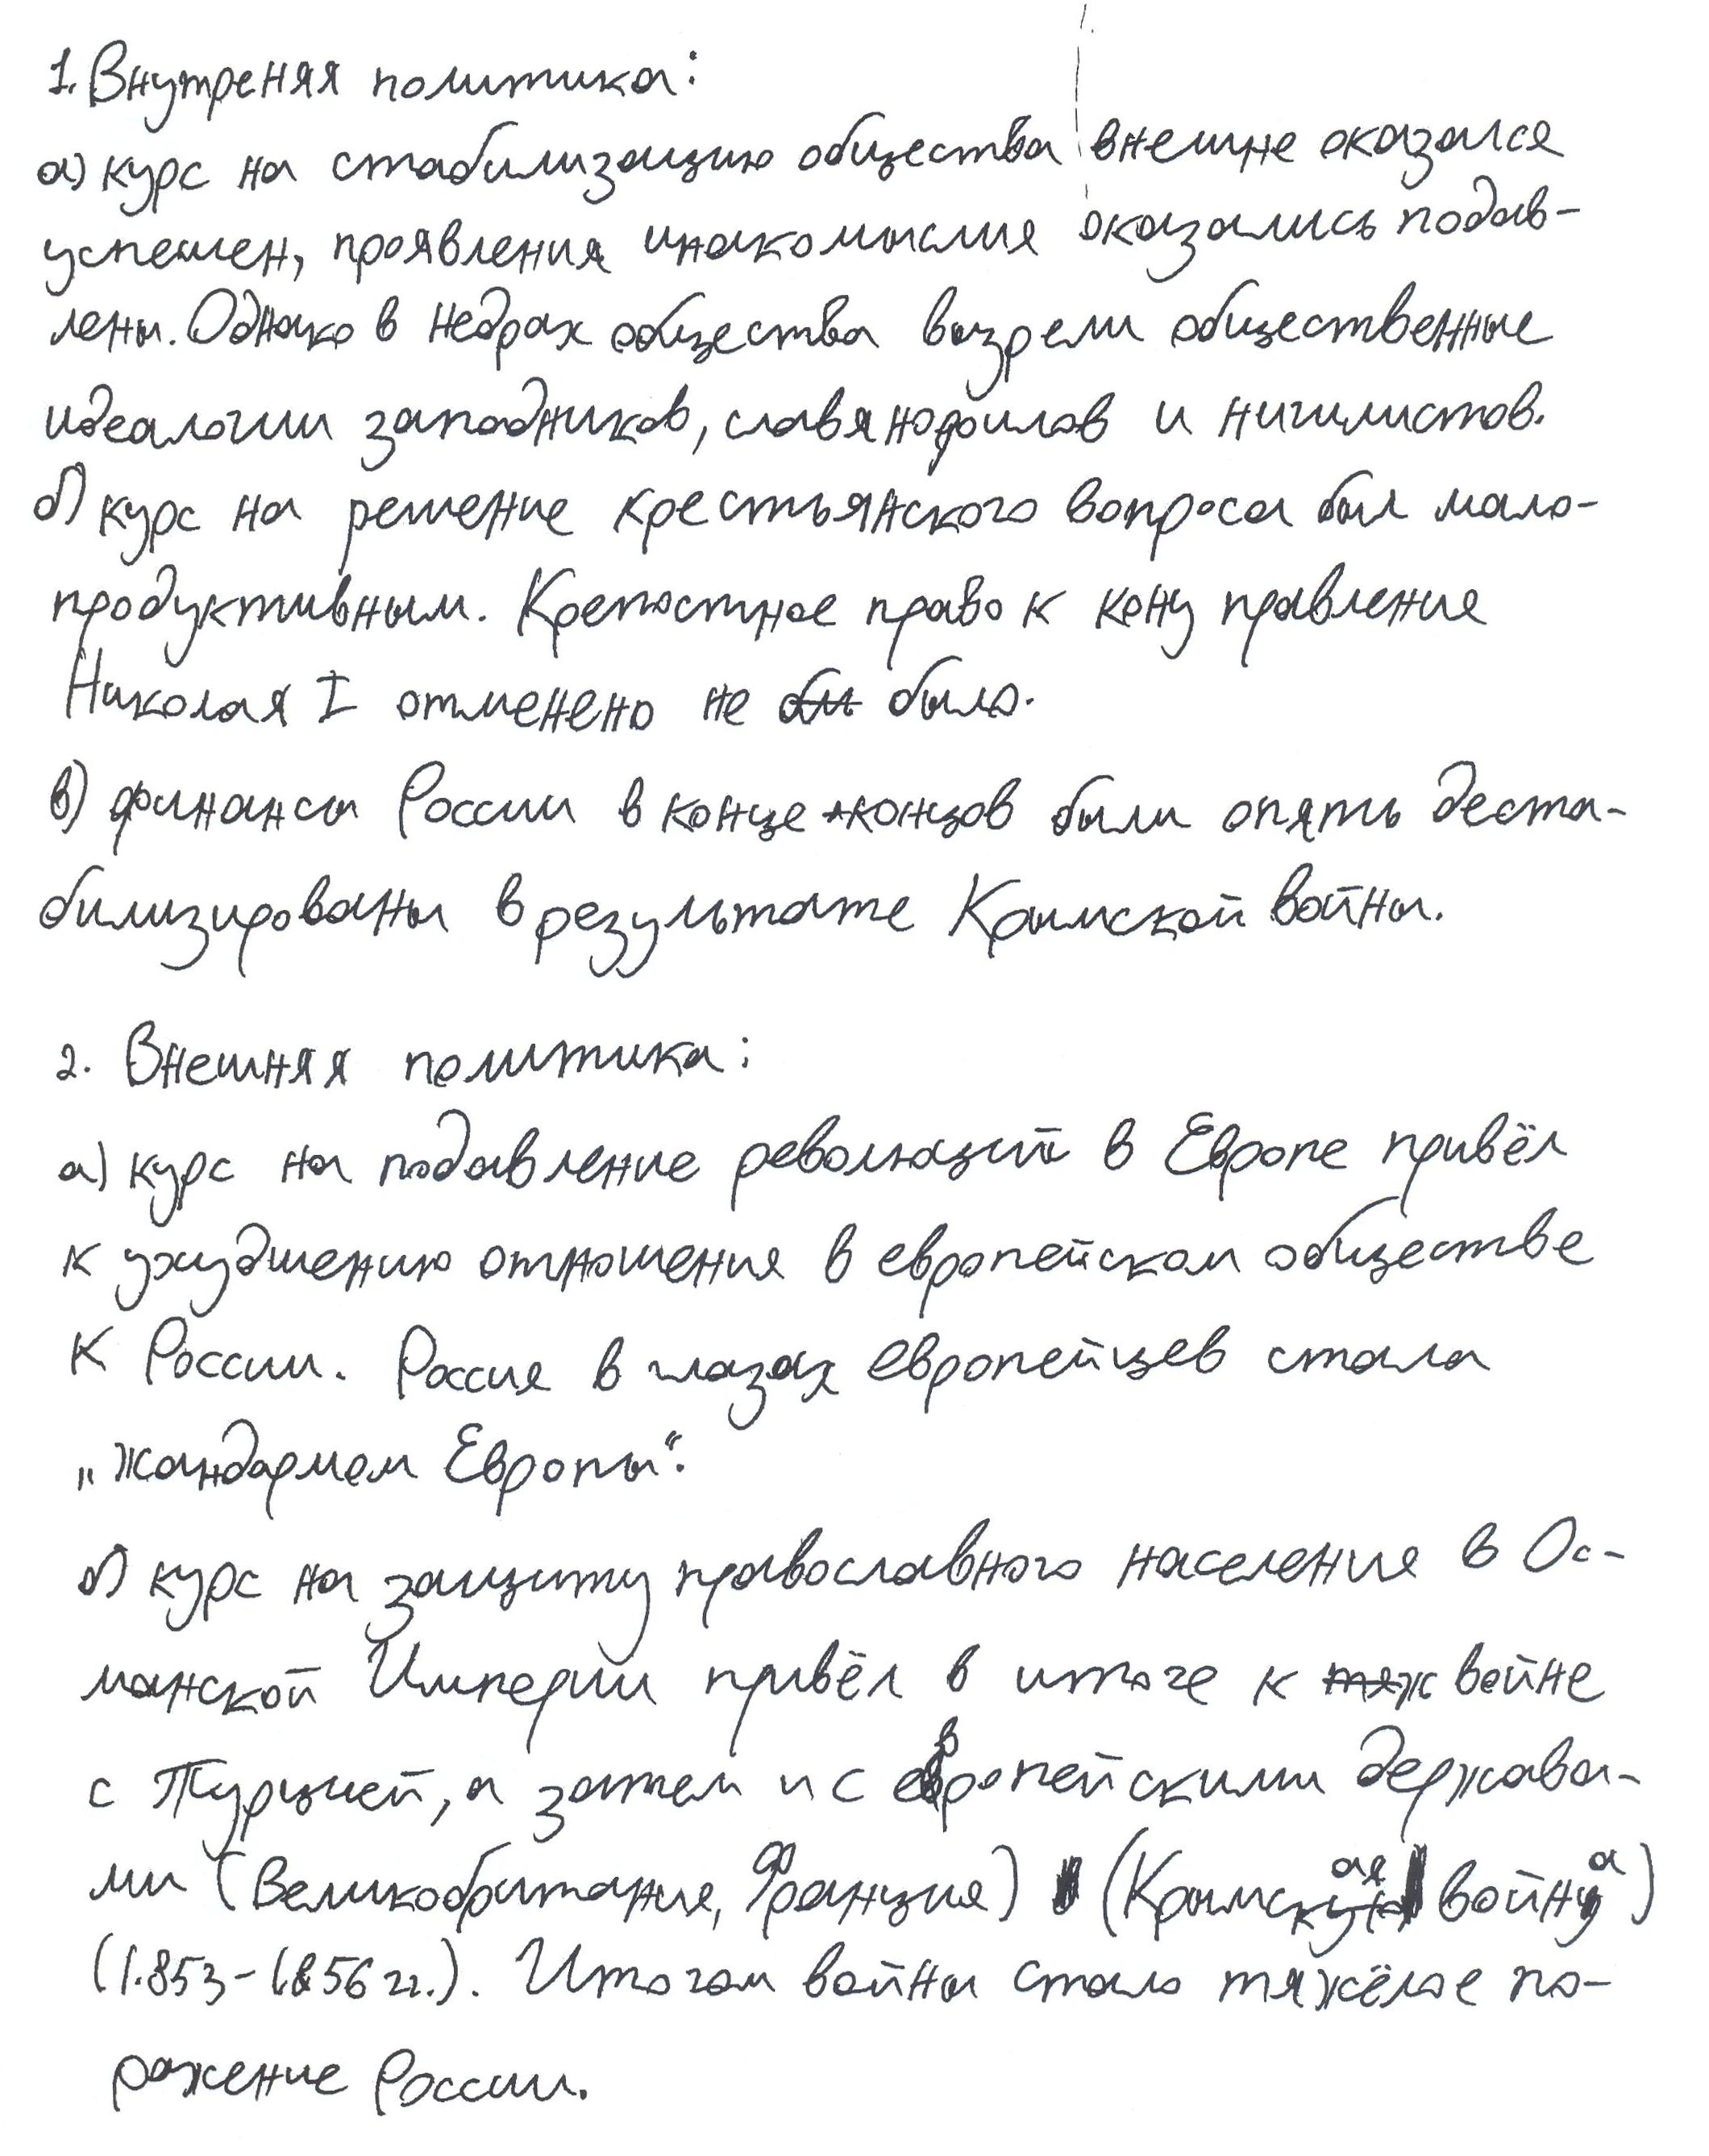 1. Внутреняя политика:
а) курс на стабилизацию общества внешне оказался
успешен, проявления инакомыслия оказались подав-
лены. Однако в недрах общества вызрели общественные
идеалогии западников, славянофилов и нигилистов.
б) курс на решение крестьянского вопроса был мало-
продуктивным. Крепостное право к кону правления
Николая I отменено не было.
в) финансы России в конце концов были опять деста-
билизированы в результате Крымской войны.
2. Внешняя политика:
а) курс на подавление революций в Европе привёл
к ухудшению отношения в европейском обществе
к России. Россия в глазах европейцев стала
„жандармом Европы“.
б) курс на защиту православного населения в Ос-
манской Империи привёл в итоге к войне
с Турцией, а затем и с европейскими держава-
ми (Великобритания, Франция) (Крымская война)
(1853-1856 гг.). Итогом войны стало тяжёлое по-
ражение России.